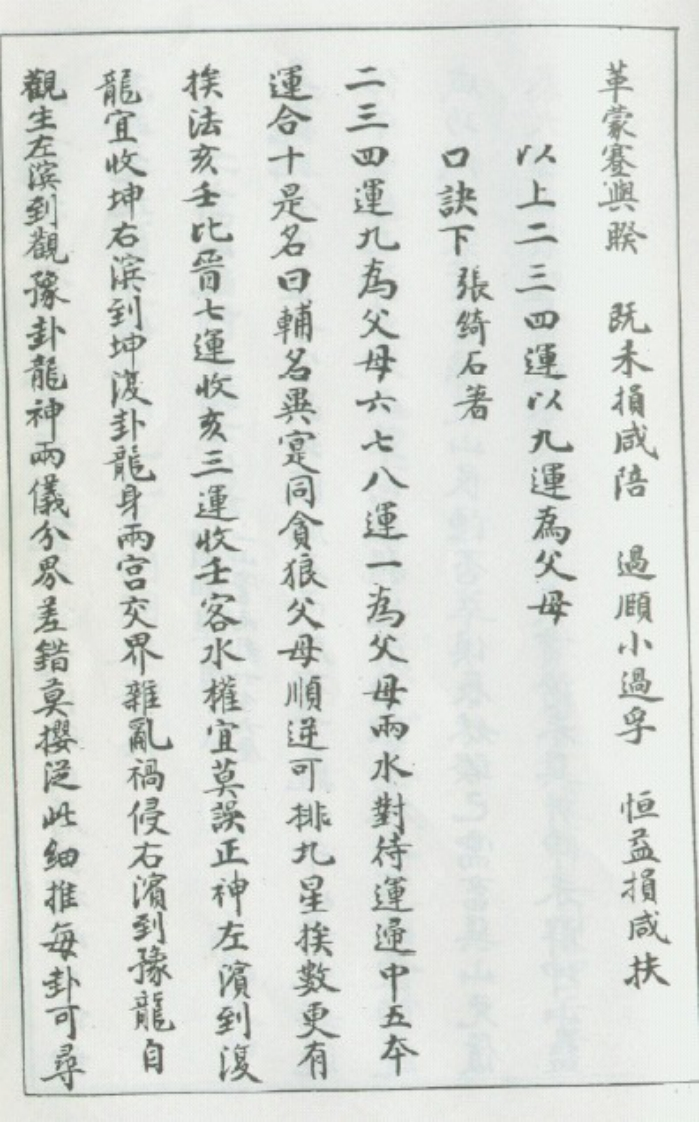 革蒙蹇與睽　既未損咸陪　過頤小過孚　恒益損咸扶
以上二三四運以九運為父母
口訣下　張綺石著
二三四運九為父母六七八運一為父母兩水對待運運中五本
運合十是名曰輔名異寔同貪狼父母順逆可排九星挨數更有
挨法亥壬比晉七運收亥三運收壬客水權宜莫誤正神左濱到復
龍宜收坤右濱到坤復卦龍身兩宮交界雜亂禍侵右濱到豫龍自
觀生左濱到觀豫卦龍神兩儀分界差錯莫攖從此細推每卦可尋